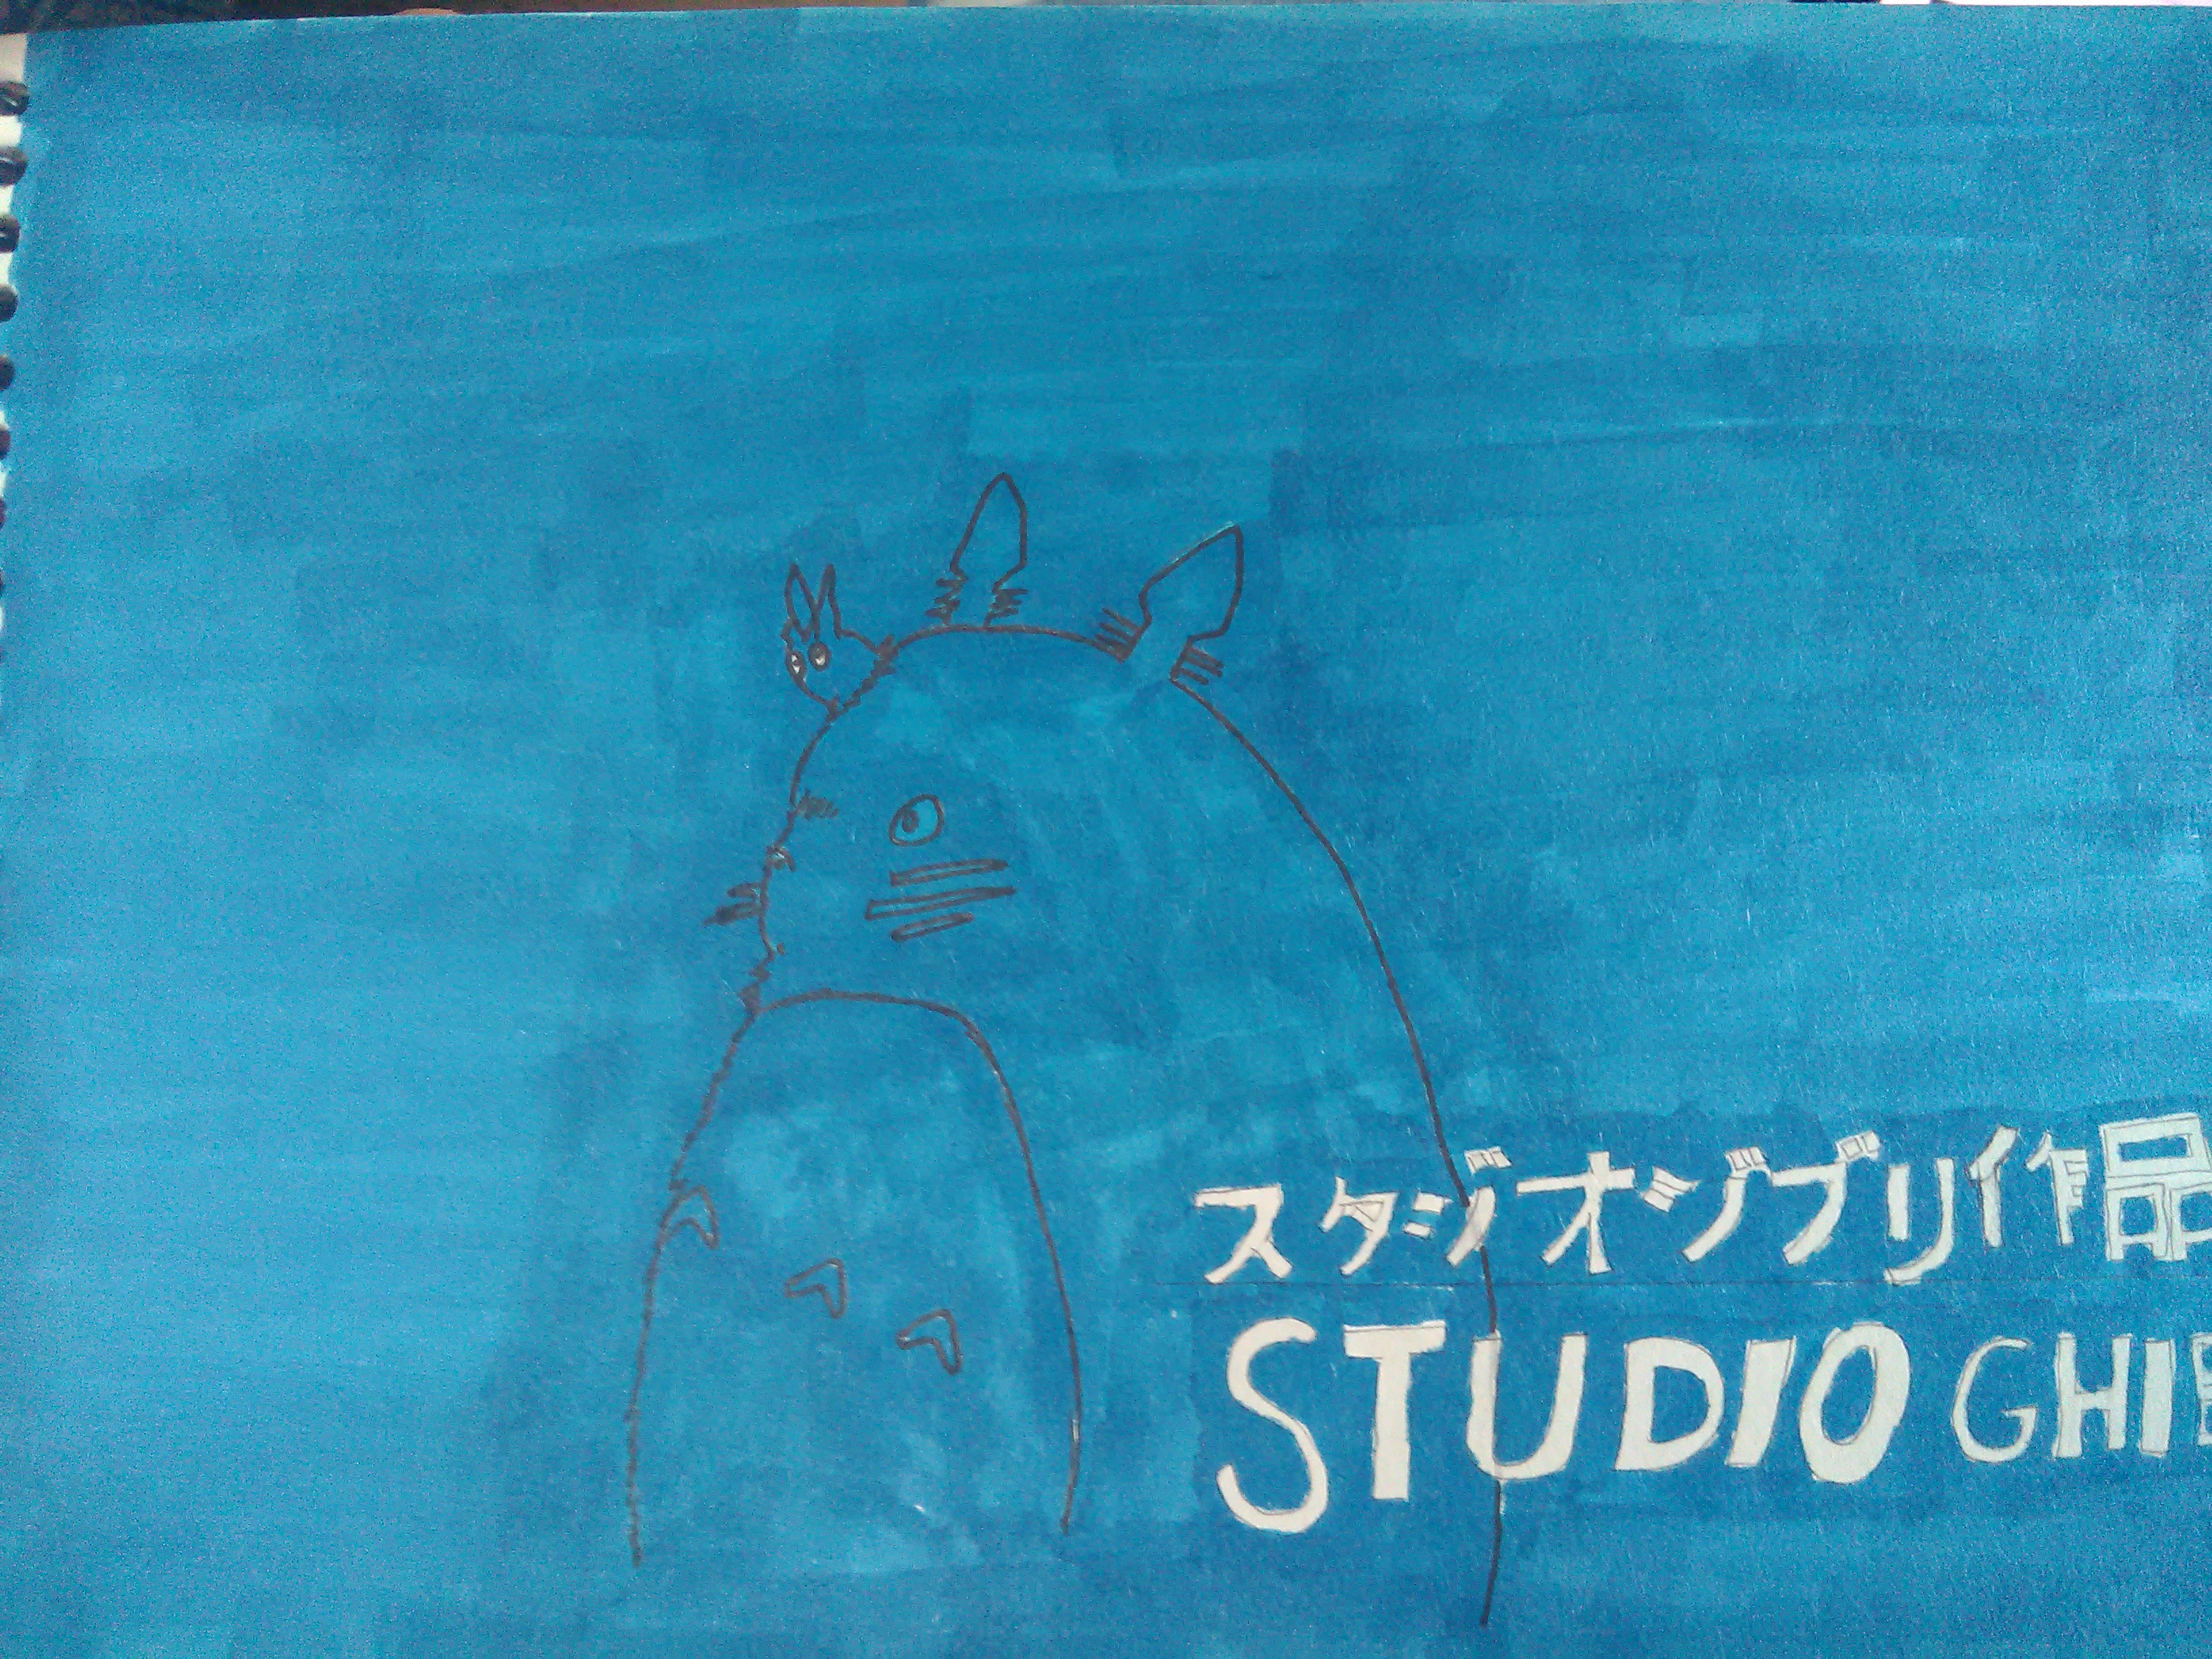 スタジオジブリ作品
STUDIO GHIB